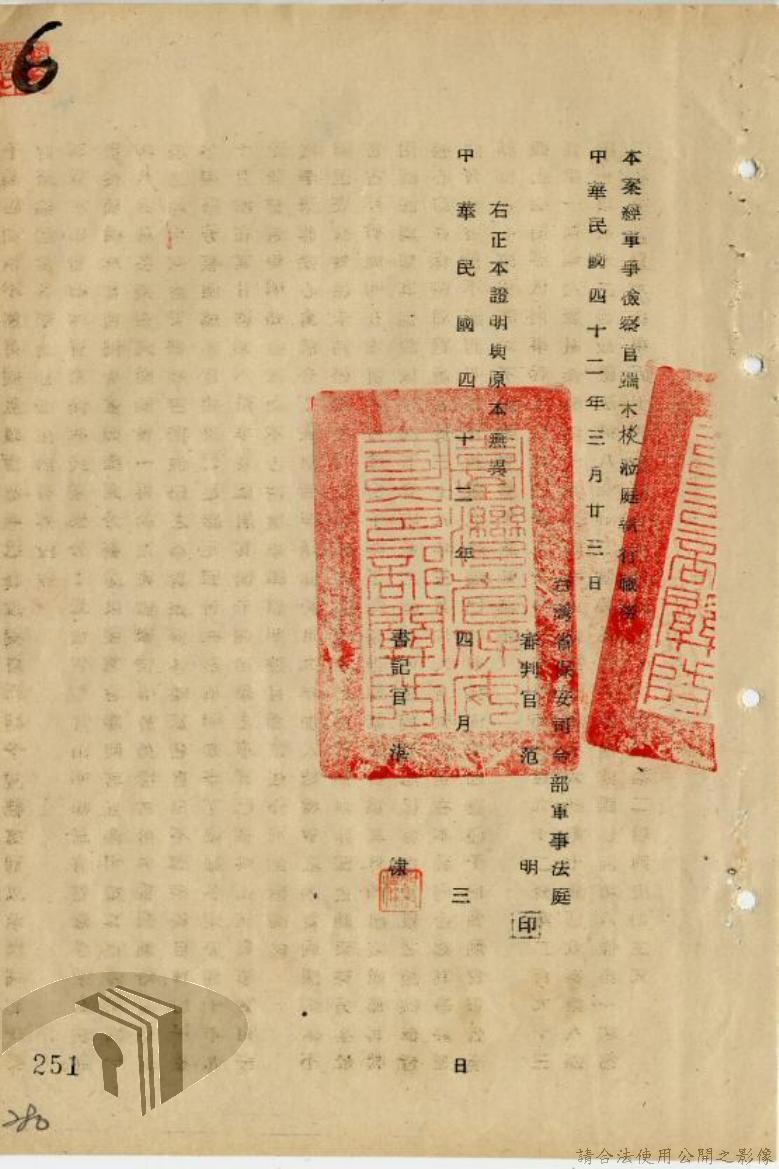 本案經軍事檢察官端木棪蒞庭執行職務
中華民國四十二年三月廿三日
台灣省保安司令部軍事法庭
審判官 范 明 印
右正本證明與原本無異
中華民國四十二年四月三日
書記官
6
251
280
請合法使用公開之影像